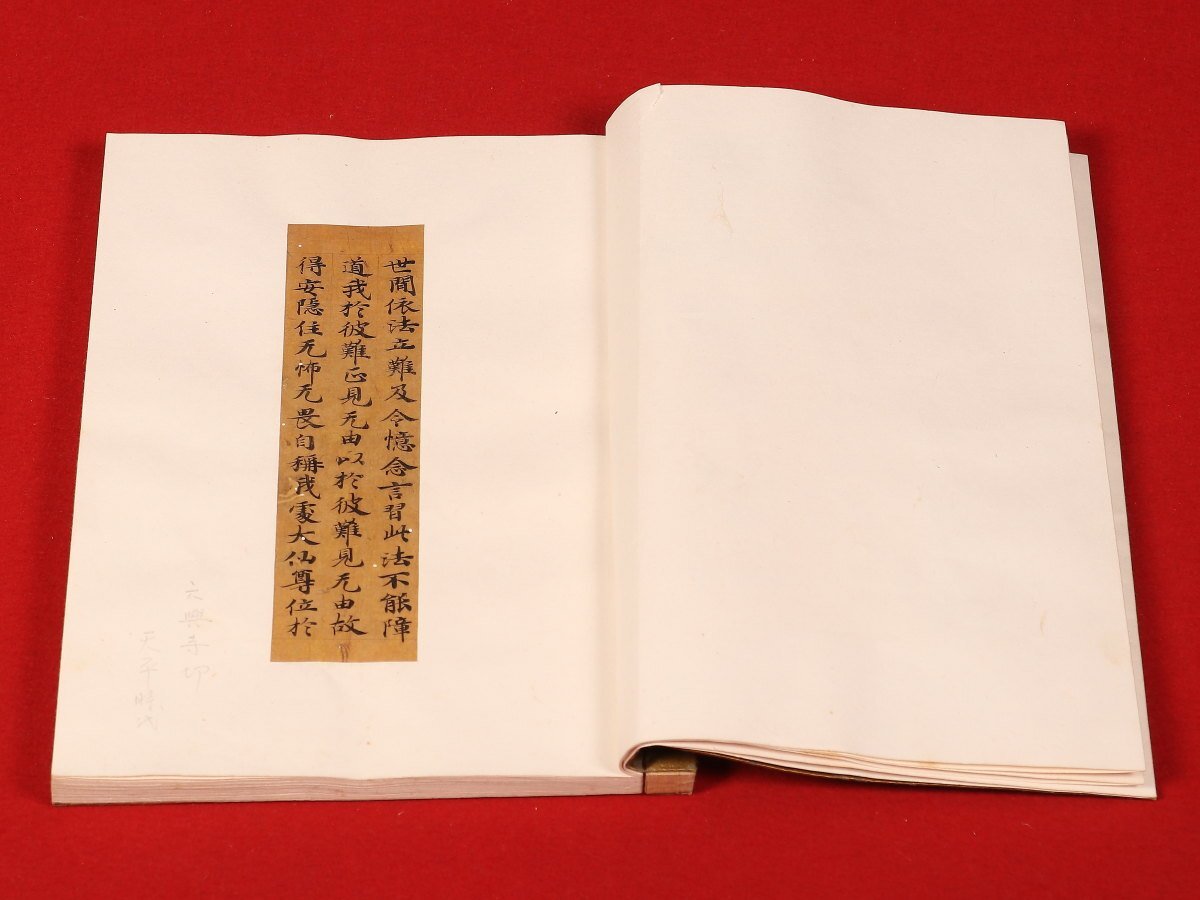 世間依法立難及令憶念言習此法不能障
道我於彼難正見无由以於彼難見无由故
得安隱住无怖无畏自稱我處大仙尊位於
六興寺切
天平時代